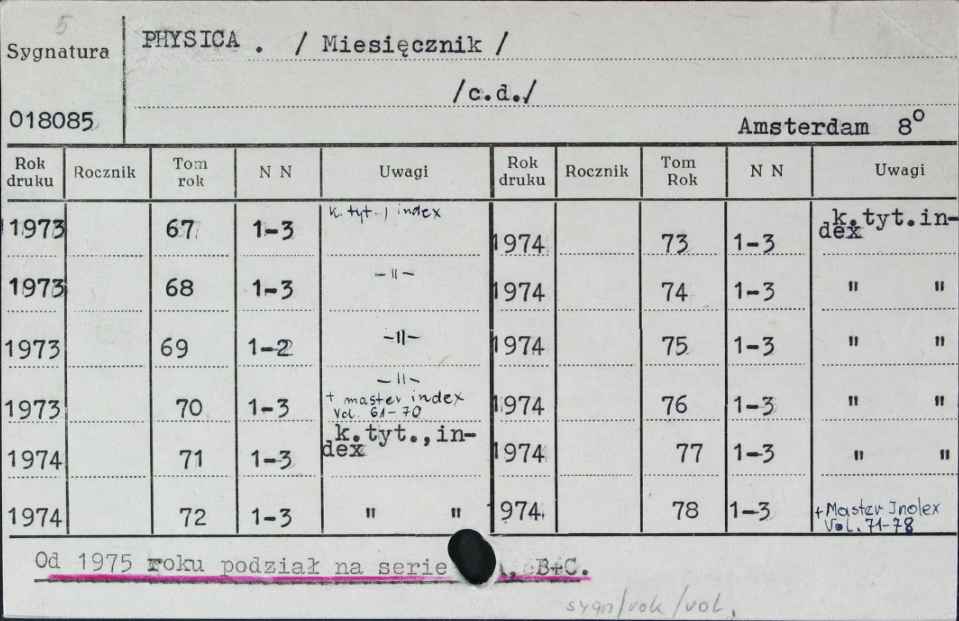 5
Sygnatura PHYSICA . / Miesięcznik /
/c.d./
018085 Amsterdam 8°
Rok druku Rocznik Tom rok N N Uwagi Rok druku Rocznik Tom Rok N N Uwagi
1973 67 1-3 k. tyt., index 1974 73 1-3 k.tyt.index
1973 68 1-3 -"- 1974 74 1-3 " "
1973 69 1-2 -"- 1974 75 1-3 " "
1973 70 1-3 -"- + master index Vol. 61-70 1974 76 1-3 " "
1974 71 1-3 k.tyt.,in-dex 1974 77 1-3 " "
1974 72 1-3 " " 1974 78 1-3 + Master Index Vol. 71-78
Od 1975 roku podział na serie , B+C.
sygn/rok/vol.